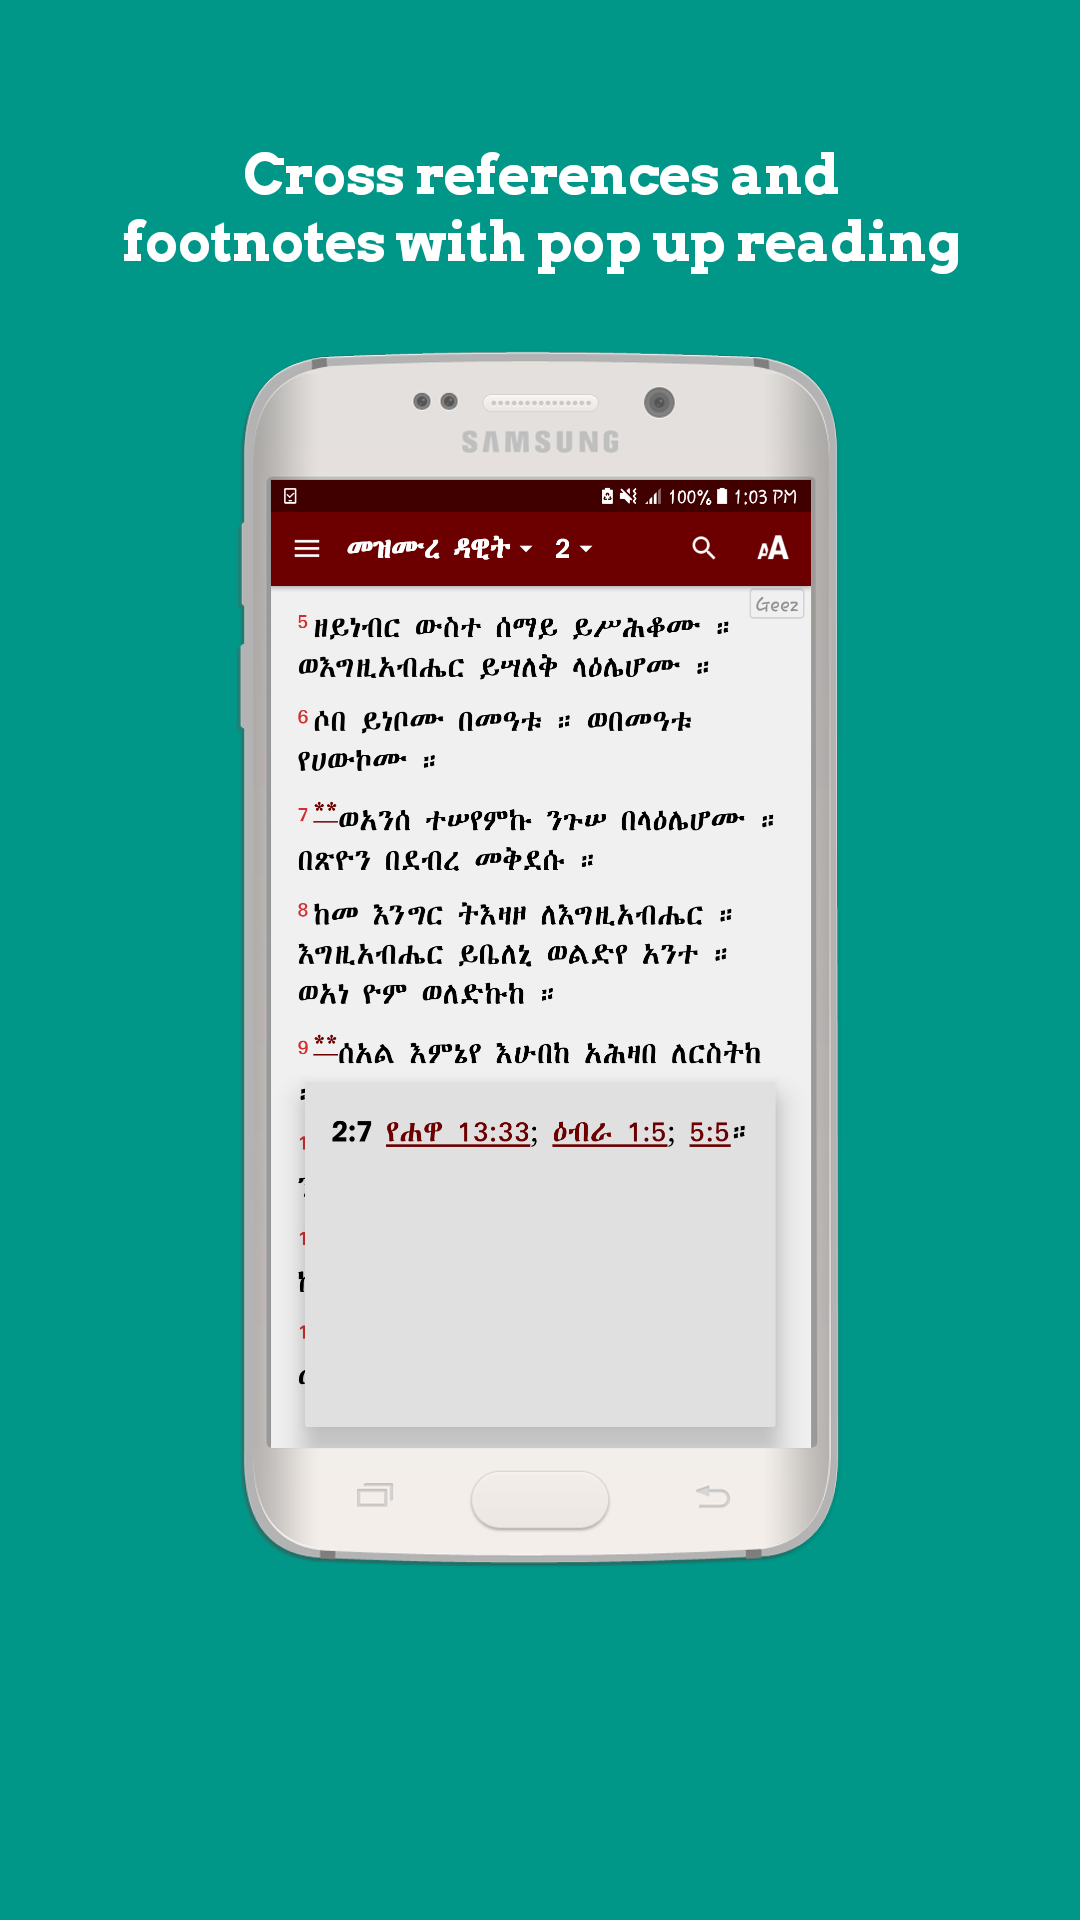 Cross references and
footnotes with pop up reading
SAMSUNG
100% 1:03 PM
መዝሙረ ዳዊት 2 AA
Geez
5 ዘይነብር ውስተ ሰማይ ይሥሕቆሙ ።
ወእግዚአብሔር ይሣለቅ ላዕሌሆሙ ።
6 ሶበ ይነቦሙ በመዓቱ ። ወበመዓቱ
የሀውኮሙ ።
7 **ወአንሰ ተሠየምኩ ንጉሠ በላዕሌሆሙ ።
በጽዮን በደብረ መቅደሱ ።
8 ከመ እንግር ትእዛዞ ለእግዚአብሔር ።
እግዚአብሔር ይቤለኒ ወልድየ አንተ ።
ወአነ ዮም ወለድኩከ ።
9 **ሰአል እምኔየ እሁበከ አሕዛበ ለርስትከ
2:7 የሐዋ 13:33; ዕብራ 1:5; 5:5።